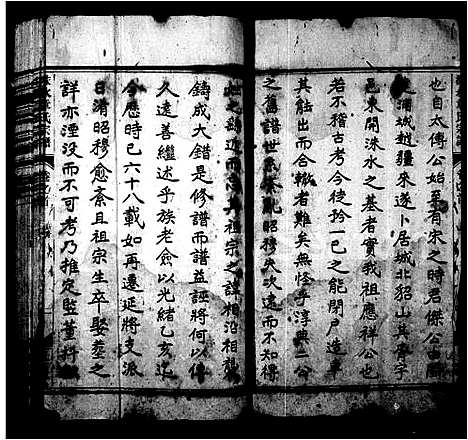 也自太傅公始至有宋之時君傑公由
之浦城越疆來遂卜居城北貂山其眷宇
邑東開洣水之基者實我祖應祥公也
若不稽古考今徒矜一已之能閉戶造車
其能出而合轍者難矣無怪乎淳典二公
之舊譜世系紊亂昭穆失次遠而不知得
此之為近而忘其祖宗之諱相沿相襲
鑄成大錯是修譜而譜益誣將何以傳
久遠善繼述乎族老僉以光緒乙亥迄
今應時已六十八載如再遷延將支派
日淆昭穆愈紊且祖宗生卒娶塟之
詳亦湮没而不可考乃推定監董